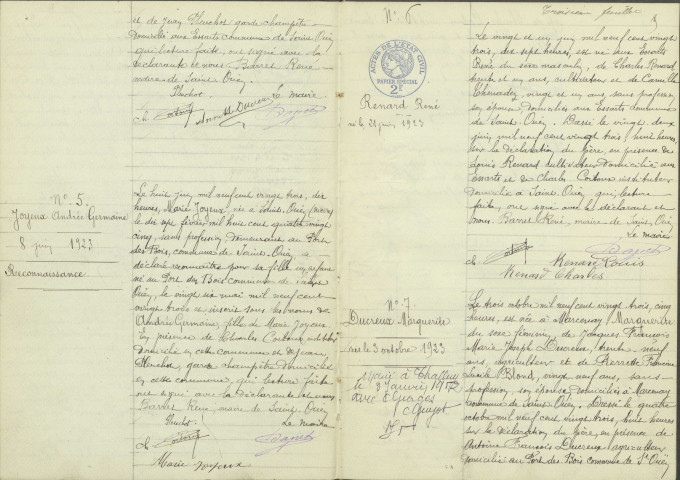 et de Jean Pluchot garde champêtre
domiciliés aux Essarts commune de Saint Ouën
qui lecture faite, ont signé avec la
déclarante et nous Barret René
maire de Saint Ouën.
Pluchot. Le maire
N° 5.
Joyeux Andrée Germaine
8 juin 1923
Reconnaissance
Le huit juin mil neuf cent vingt trois, dix
heures, Marie Joyeux née à Saint Ouën
le dix sept février mil huit cent quatre vingt
cinq, sans profession, demeurant au Port
des Bois, commune de Saint Ouën, a
déclaré reconnaître pour sa fille un enfant
né au Port des Bois commune de Saint
Ouën, le vingt six mai mil neuf cent
vingt trois et inscrit sous les noms de
Andrée Germaine, fille de Marie Joyeux.
En présence de Charles
domicilié en cette commune et de Jean
Pluchot, garde champêtre domicilié
en cette commune, qui lecture faite
ont signé avec la déclarante et nous
Barret René maire de Saint Ouën
Pluchot. Le maire
Marie Joyeux
N° 6
ACTES DE L'ÉTAT CIVIL
PAPIER SPÉCIAL
2F
Renard René
né le 21 juin 1923
N° 7
Ducreux Marguerite
née le 3 octobre 1923
le 3 Janvier 1942
avec
Troisième feuillet
3
Le vingt et un juin mil neuf cent vingt
trois, dix sept heures, est né aux Essarts
René du sexe masculin, de Charles Renard
trente et un ans, cultivateur et de Camille
vingt et un ans, sans profession,
son épouse, domiciliés aux Essarts commune
de Saint Ouën. Dressé le vingt deux
juin mil neuf cent vingt trois, huit heures,
sur la déclaration du père, en présence de
Louis Renard cultivateur domicilié aux
Essarts et de Charles instituteur
domicilié à Saint Ouën, qui, lecture
faite, ont signé avec le déclarant et
nous Barret René, maire de Saint Ouën
Le maire
Renard Louis
Renard Charles
Le trois octobre mil neuf cent vingt trois, cinq
heures, est née à Marcenay, Marguerite
du sexe féminin, de Jacques François
Marie Joseph Ducreux, trente neuf
ans, agriculteur et de Pierrette Françoise
Blond, vingt neuf ans, sans
profession, son épouse, domiciliés à Marcenay
commune de Saint Ouën. Dressé le quatre
octobre mil neuf cent vingt trois, huit heures
sur la déclaration du père, en présence de
Antoine François Ducreux, agriculteur
domicilié au Port des Bois commune de St Ouën